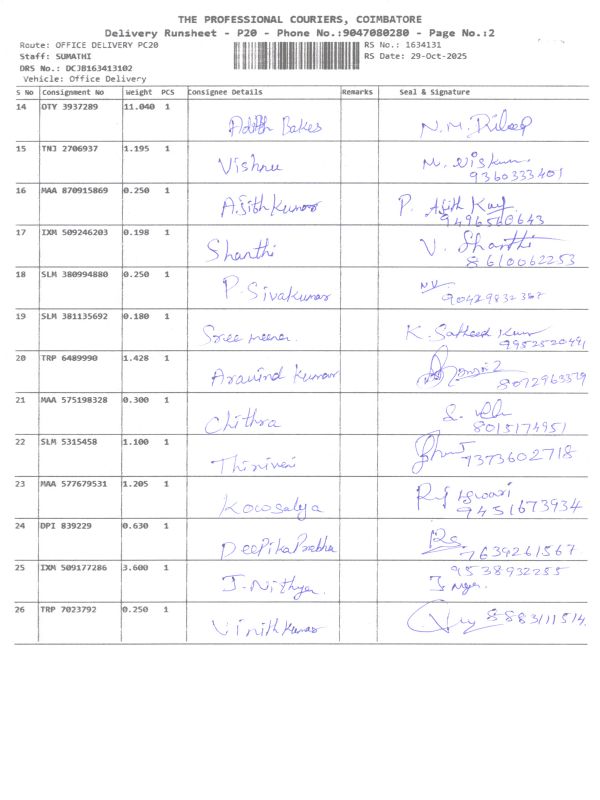 THE PROFESSIONAL COURIERS, COIMBATORE
Delivery Runsheet - P20 - Phone No.:9047080280 - Page No.:2
Route: OFFICE DELIVERY PC20 RS No.: 1634131
Staff: SUMATHI RS Date: 29-Oct-2025
DRS No.: DCJB163413102
Vehicle: Office Delivery
S No Consignment No Weight PCS Consignee Details Remarks Seal & Signature
14 OTY 3937289 11.040 1
Adith Bakes N.M. Dileep
15 TNJ 2706937 1.195 1
Vishnu M.
9360333401
16 MAA 870915869 0.250 1
Ajith Kumar P. Ajith
9496560643
17 IXM 509246203 0.198 1
Shanthi V. Shanthi
8610062253
18 SLM 380994880 0.250 1
P. Sivakumar
19 SLM 381135692 0.180 1
Sree meena. K.
9952520491
20 TRP 6489990 1.428 1
Aravind Kumar
8072963379
21 MAA 575198328 0.300 1
Chithra
8015174951
22 SLM 5315458 1.100 1
7373602718
23 MAA 577679531 1.205 1
Kowsalya
9451673934
24 DPI 839229 0.630 1
Deepika Prabha
7639261567
25 IXM 509177286 3.600 1
9538932255
J. Nithya.
26 TRP 7023792 0.250 1
Vinith Kumar 8883111514